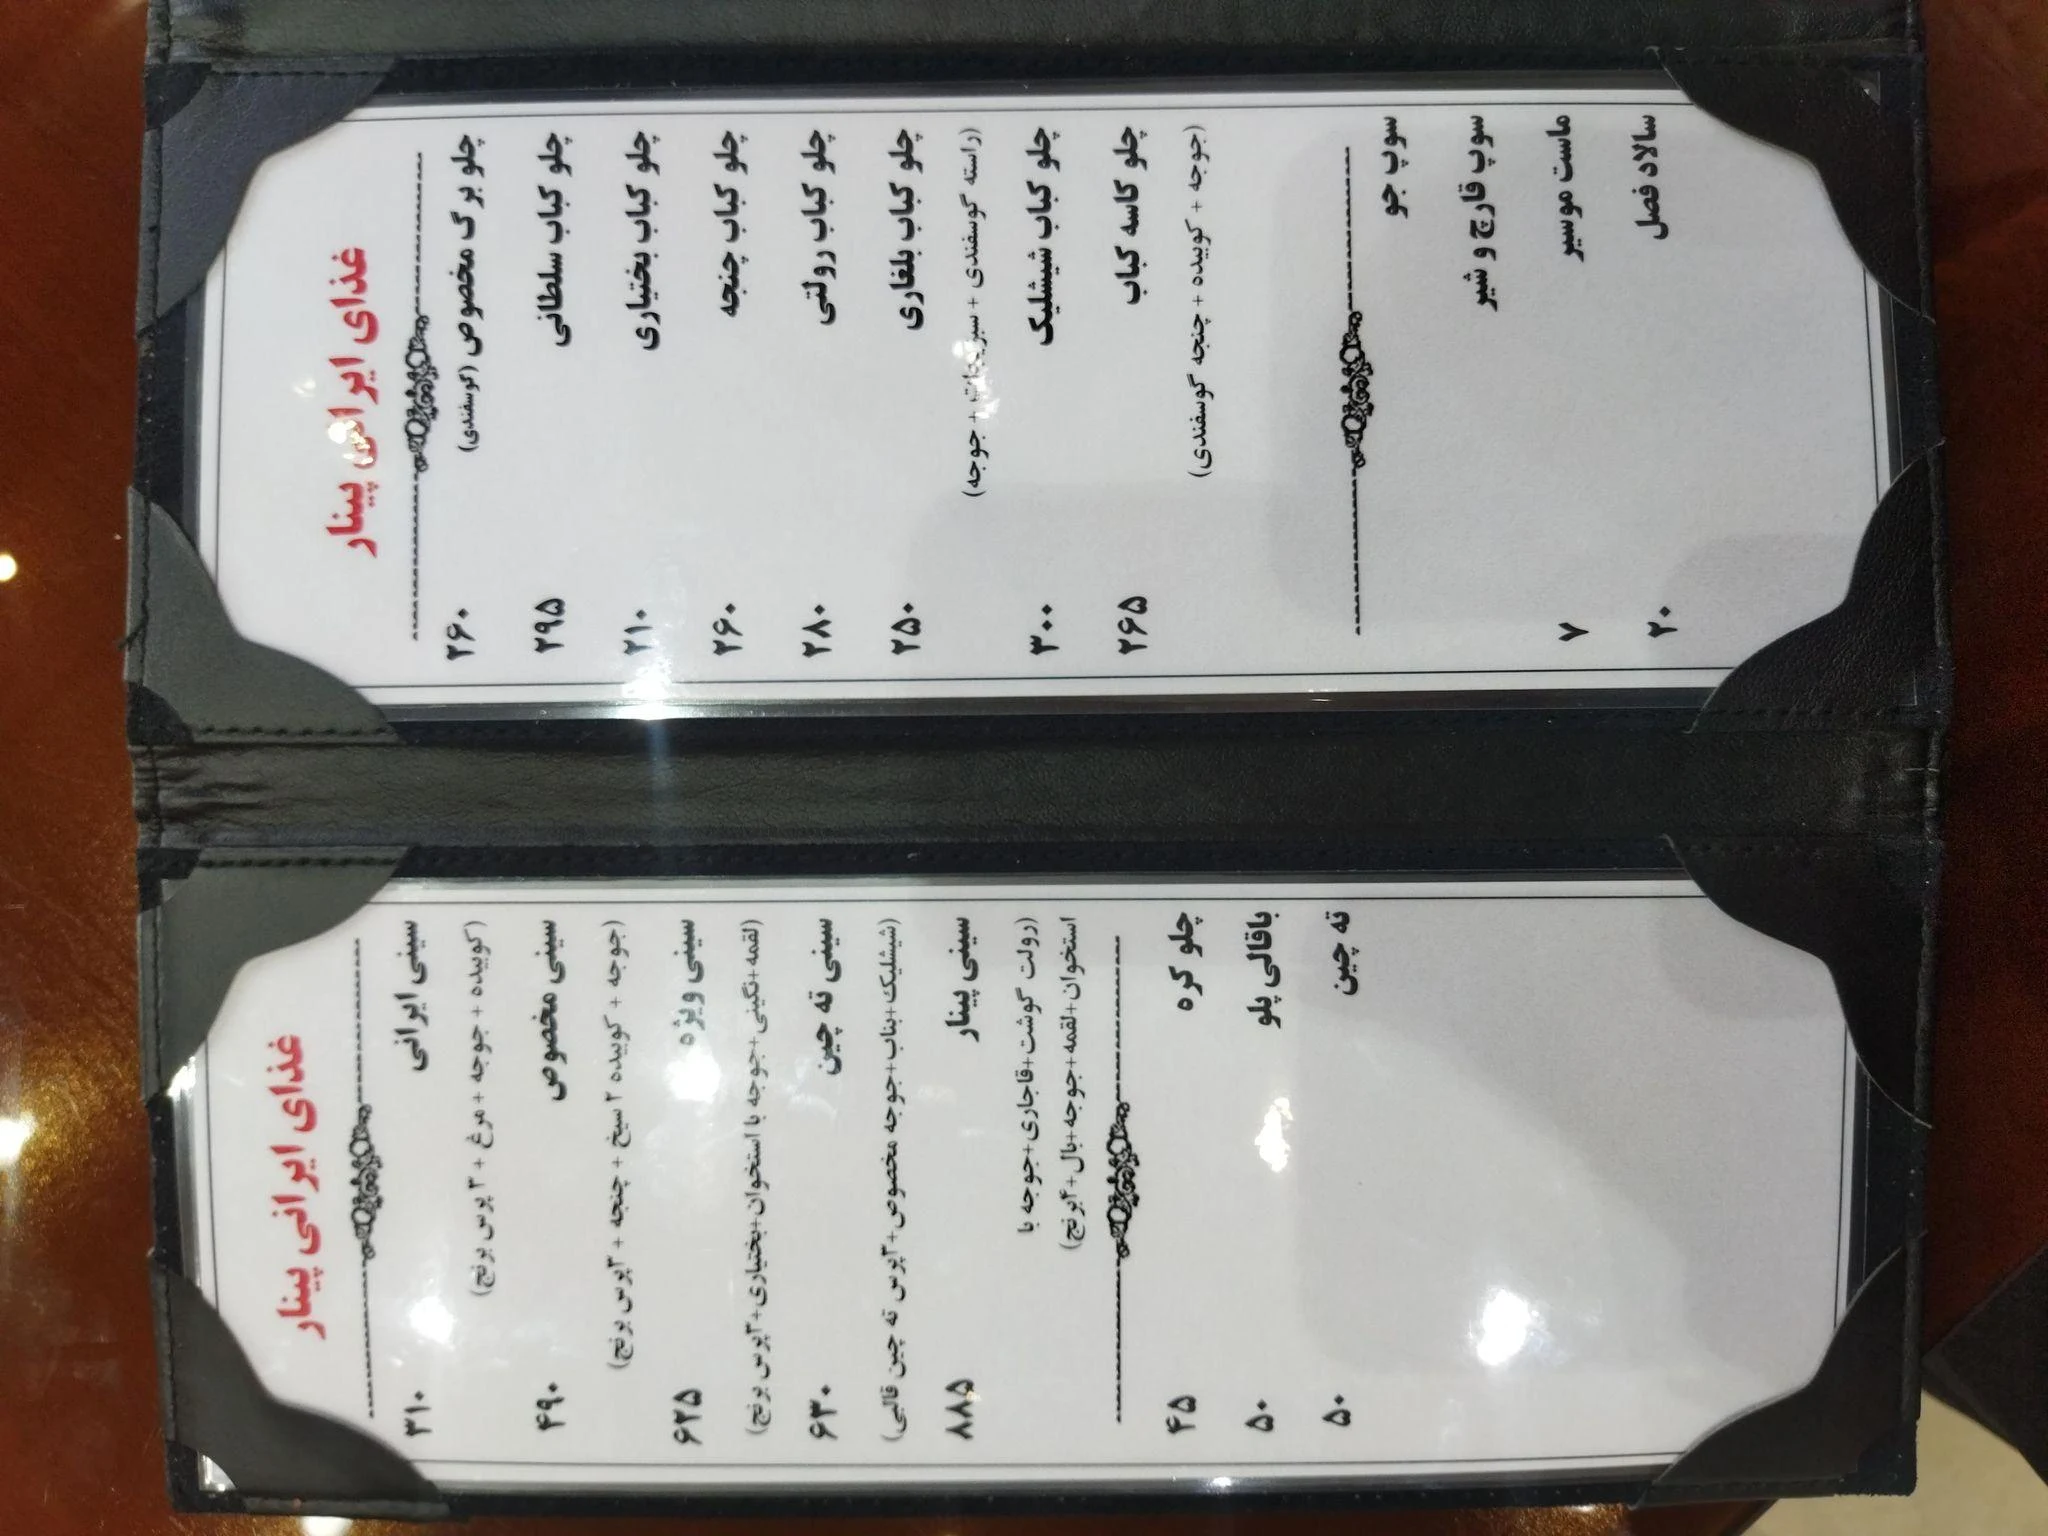 غذای ایرانی پینار
چلو برگ مخصوص (گوسفندی) ۲۶۰
چلو کباب سلطانی ۲۹۵
چلو کباب بختیاری ۲۱۰
چلو کباب چنجه ۲۶۰
چلو کباب رولتی ۲۸۰
چلو کباب بلغاری ۲۵۰
(راسته گوسفندی + سبزیجات + جوجه)
چلو کباب شیشلیک ۳۰۰
چلو کاسه کباب ۲۶۵
(جوجه + کوبیده + چنجه گوسفندی)
سوپ جو
سوپ قارچ و شیر
ماست موسیر ۷
سالاد فصل ۲۰
غذای ایرانی پینار
سینی ایرانی ۳۱۰
(کوبیده + جوجه + مرغ + ۳ پرس برنج)
سینی مخصوص ۴۹۰
(جوجه + کوبیده ۲ سیخ + چنجه + ۳پرس برنج)
سینی ویژه ۶۲۵
(لقمه+نگینی+جوجه با استخوان+بختیاری+۳پرس برنج)
سینی ته چین ۶۳۰
(شیشلیک+بناب+جوجه مخصوص+۳پرس ته چین قالبی)
سینی پینار ۸۸۵
(رولت گوشت+قاجاری+جوجه با
استخوان+لقمه+جوجه+بال+۴برنج)
چلو کره ۴۵
باقالی پلو ۵۰
ته چین ۵۰